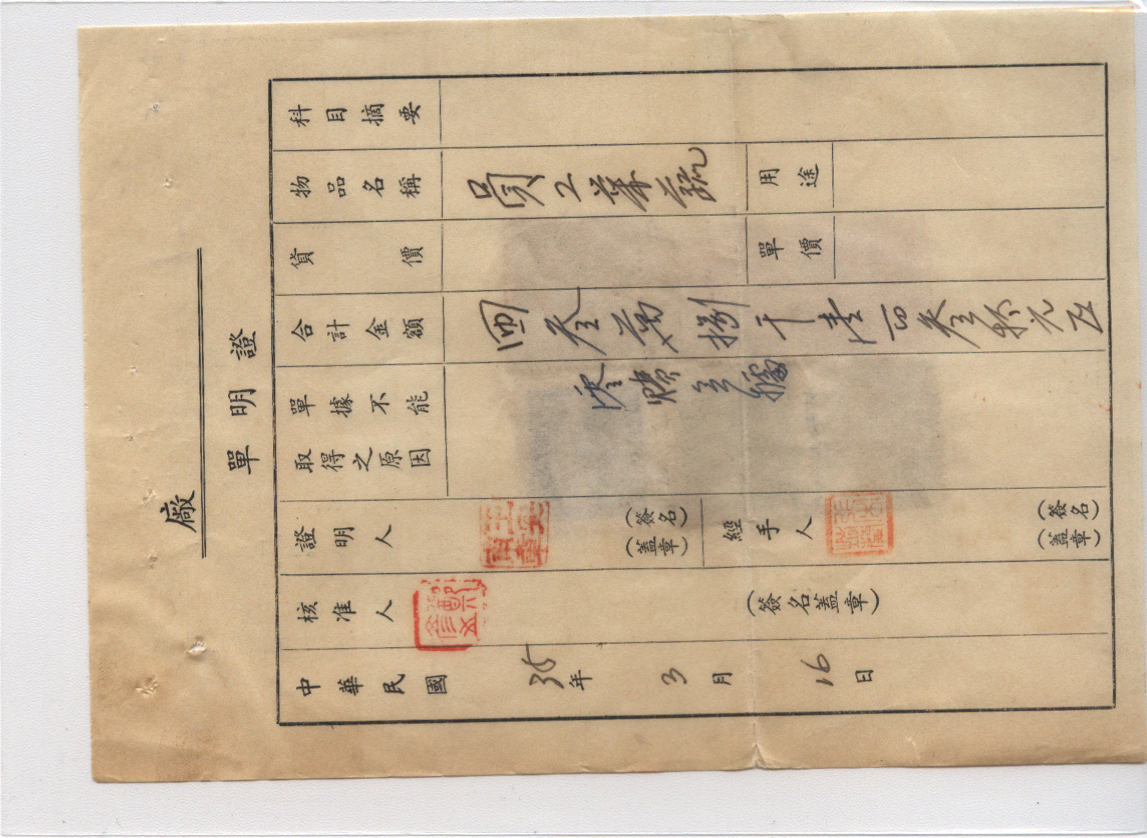 證明單
廠
科目摘要
物品名稱 員工菜蔬 用途
貨價 單價
合計金額 叁萬捌千壹百叁拾元正
單據不能取得之原因 零購無據
證明人 (簽名)(蓋章) 經手人 (簽名)(蓋章)
核准人 (簽名蓋章)
中華民國 35年 3月 16日